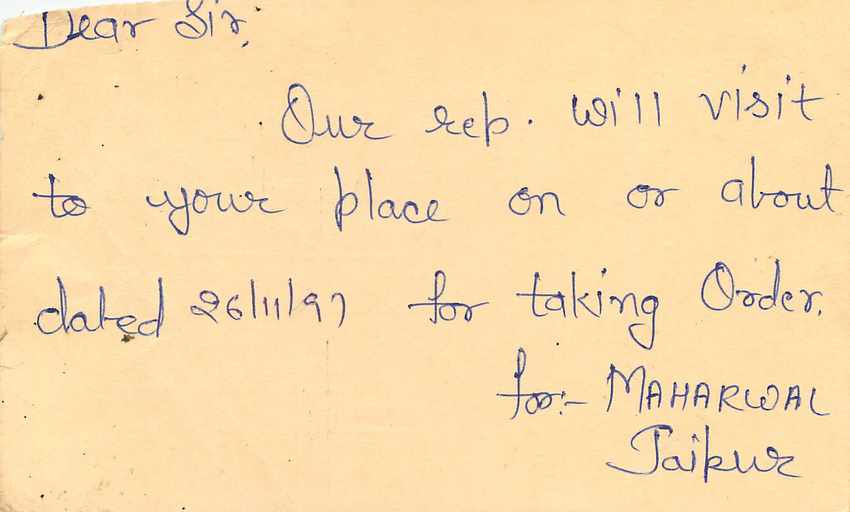 Dear Sir,
Our rep. will visit
to your place on or about
dated 26/11/97 for taking Order.
for:- MAHARWAL
Jaipur